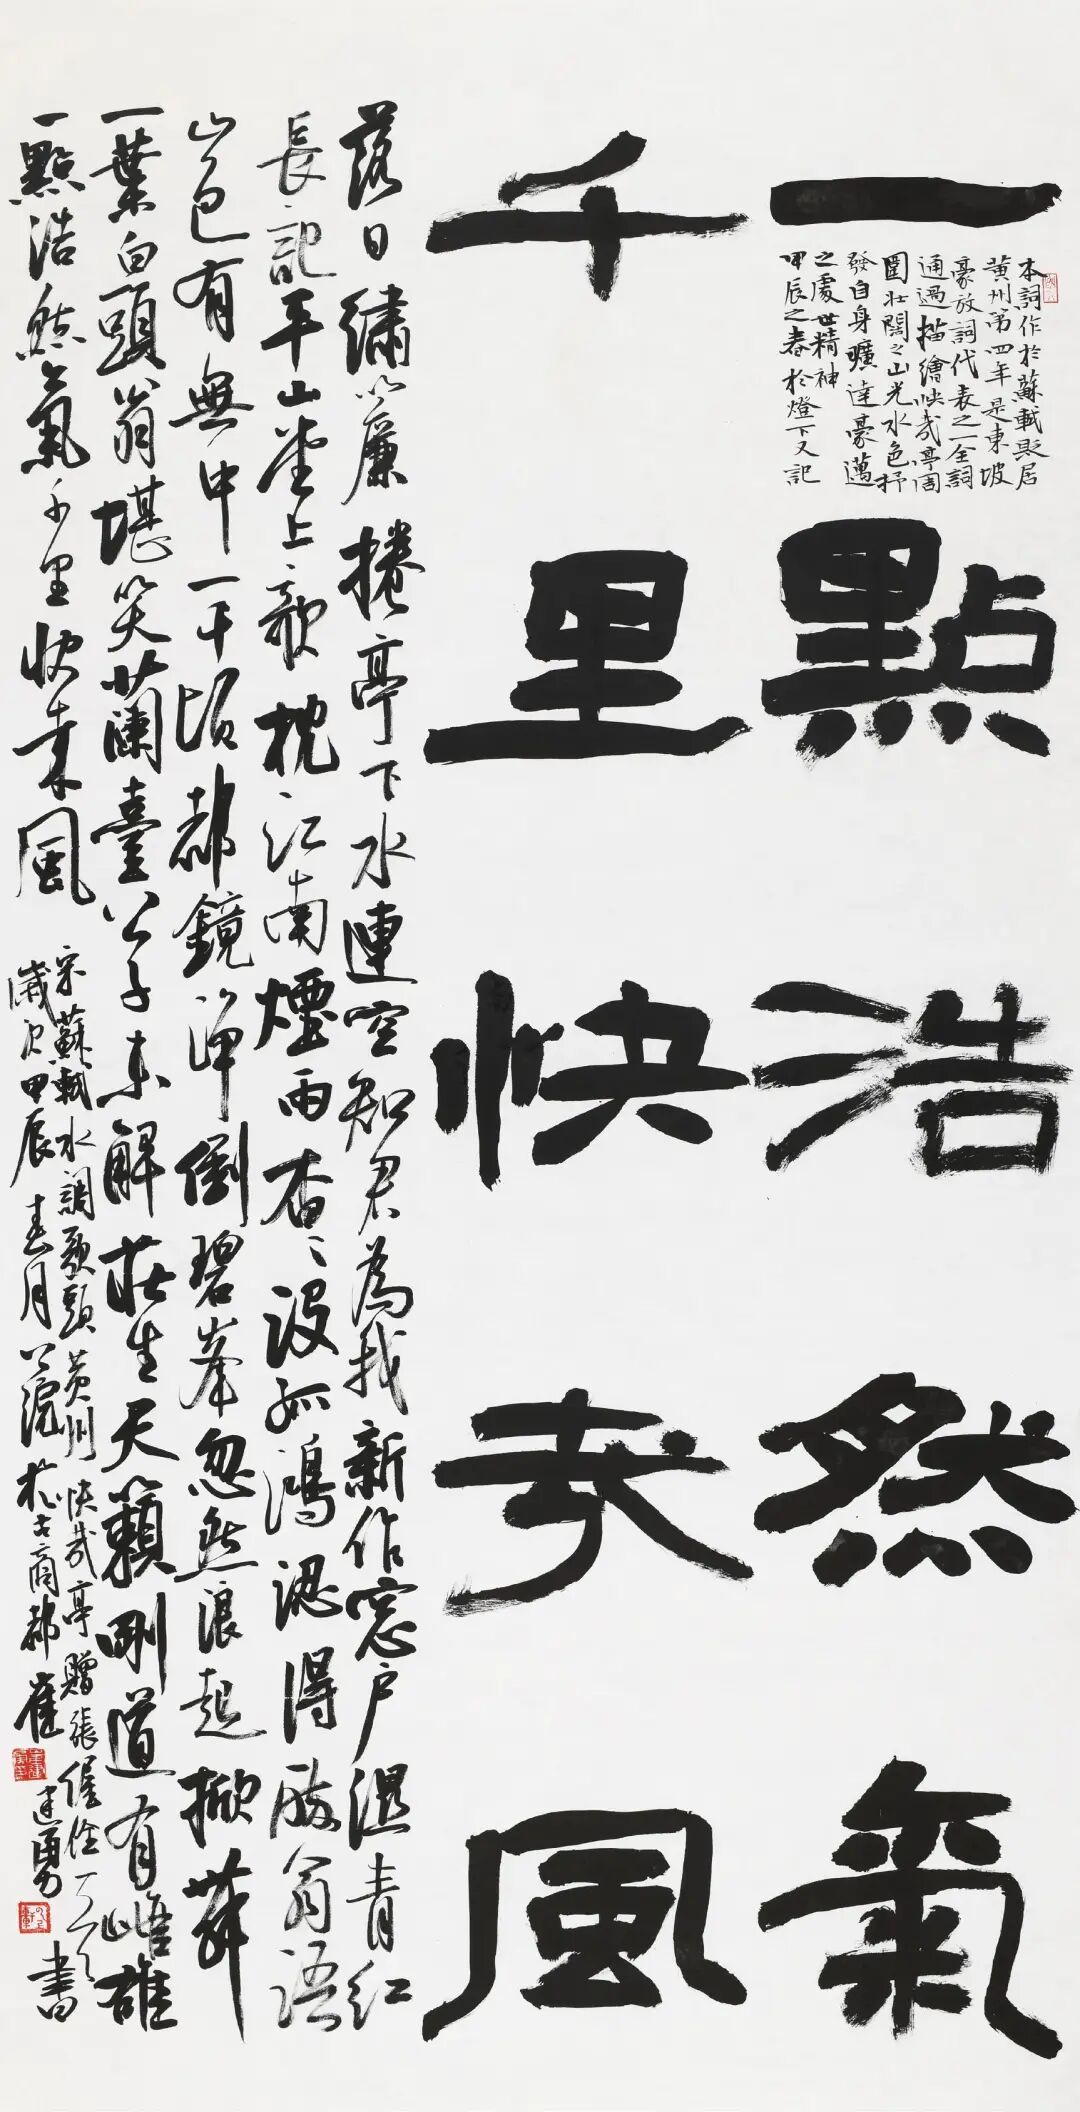 一點浩然氣
本詞作於蘇軾貶居
黄州第四年是東坡
豪放詞代表之一全詞
通過描繪快哉亭周
圍壯闊之山光水色抒
發自身曠達豪邁
之處世精神
甲辰之春於燈下又記
千里快哉風
落日繡簾捲亭下水連空知君為我新作窓户溼青紅
長記平山堂上欹枕江南煙雨杳〻没孤鴻認得醉翁語
山色有無中一千頃都鏡浄倒碧峯忽然浪起掀舞
一葉白頭翁堪笑蘭臺公子未解莊生天籟剛道有雌雄
一點浩然氣千里快哉風
宋蘇軾水調歌頭黄州快哉亭贈張偓佺
歲次甲辰春月於古商都崔建勇書